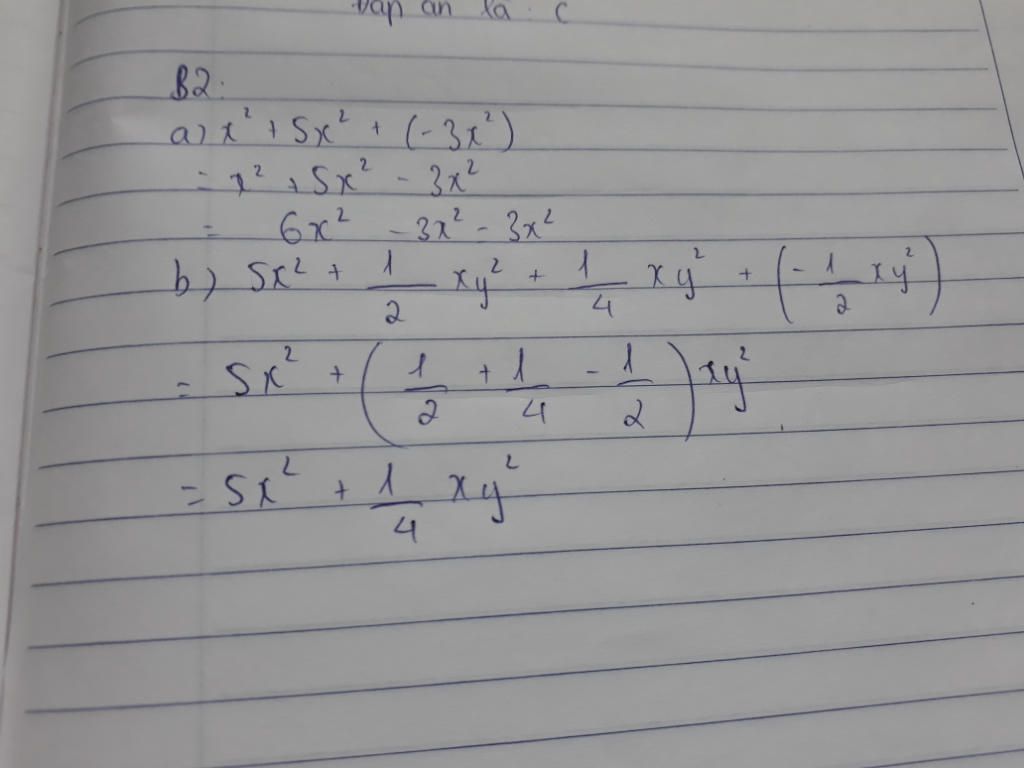 đáp án là : C
B2:
a) x² + 5x² + (-3x²)
= x² + 5x² - 3x²
= 6x² - 3x² - 3x²
b) 5x² + 1/2 xy² + 1/4 xy² + (-1/2 xy²)
= 5x² + (1/2 + 1/4 - 1/2) xy²
= 5x² + 1/4 xy²